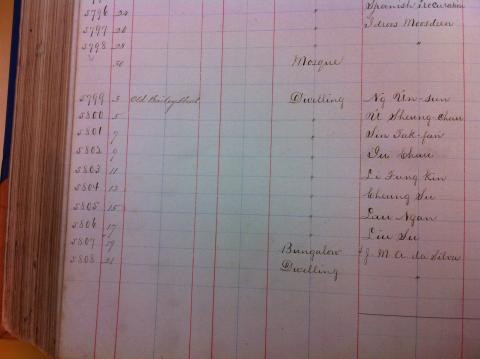 5796 24 Spanish Procuration
5797 26 Idroos Moosdeen
5798 28 "
30 Mosque
5799 3 Old Bailey Street Dwelling Ng Un-sun
5800 5 " U Sheung-chau
5801 7 " Sin Tak-fan
5802 9 " Chau
5803 11 " Li Fung Kin
5804 13 " Cheung Su
5805 15 " Lau Ngan
5806 17 " Liu Su
5807 19 Bungalow J. M. A. da Silva
5808 21 Dwelling "